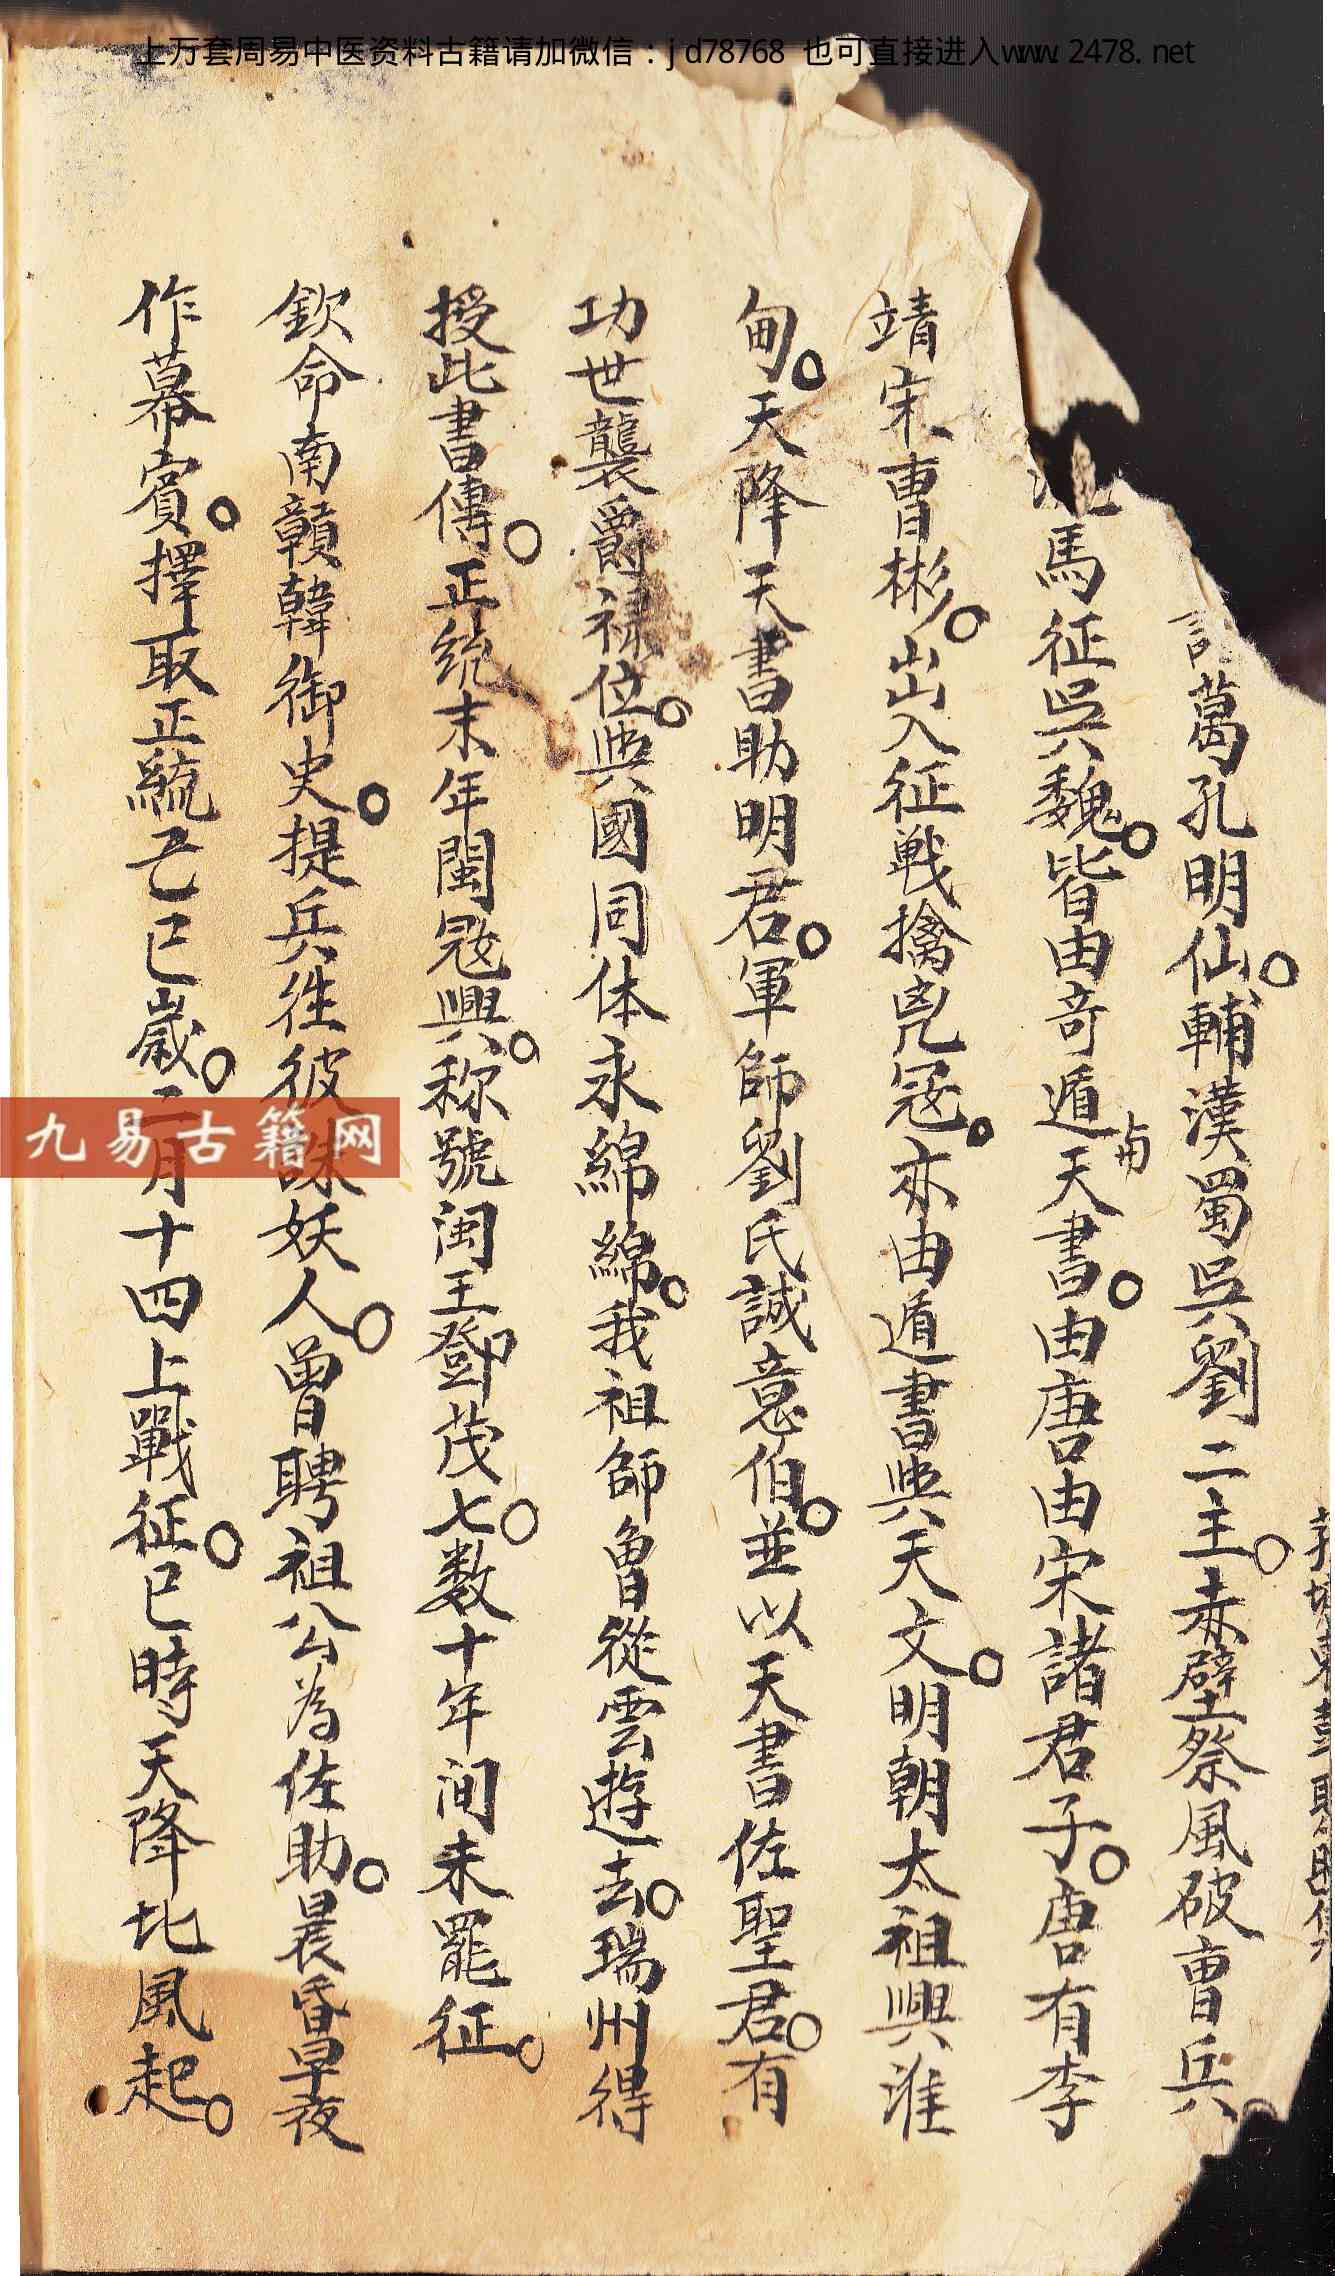 上万套周易中医资料古籍请加微信：jd78768 也可直接进入www.2478.net
萬孔明仙○輔漢蜀吳劉二主○赤壁祭風破曹兵
馬征吳魏○皆由奇遁与天書○由唐由宋諸君子○唐有李
靖宋曹彬○出入征戦擒兇冦○亦由遁書與天文○明朝太祖興淮
甸○天降天書助明君○軍師劉氏誠意伯○並以天書佐聖君○有
功世襲爵禄位○與國同体永綿綿○我祖師魯從雲遊去○瑞州得
授此書傳○正統末年閩冦興○称號闽王鄧茂七○数十年间未罷征○
欽命南贛韓御史○提兵徃彼誅妖人○曾聘祖公為佐助○晨昏早夜
作幕賓○擇取正統己巳歲○二月十四上戰征○巳時天降北風起○
九易古籍网